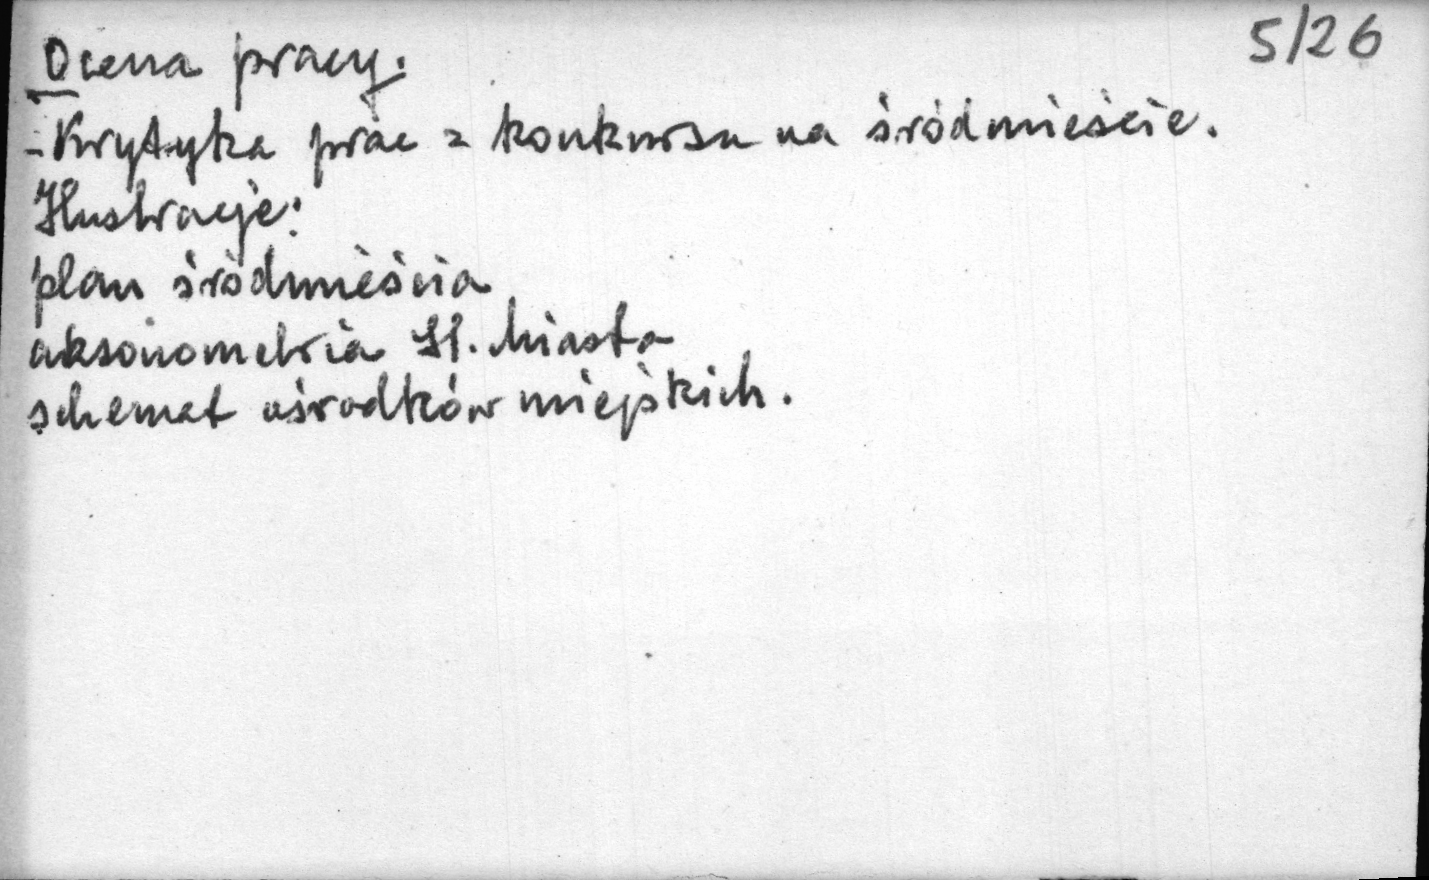 5/26
Ocena pracy.
- Krytyka prac z konkursu na śródmieście.
Ilustracje:
plan śródmieścia
aksonometria St. Miasta
schemat ośrodków miejskich.